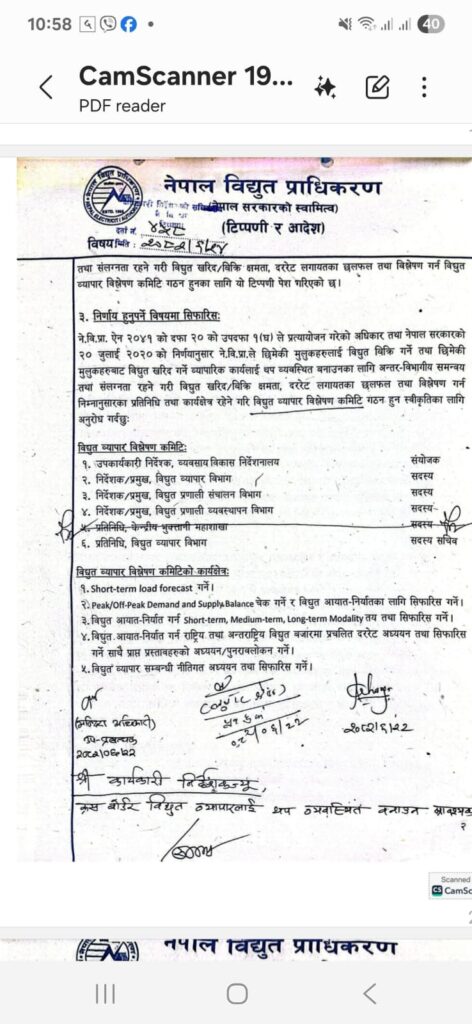 10:58
40
CamScanner 19...
PDF reader
नेपाल विद्युत प्राधिकरण
(नेपाल सरकारको स्वामित्व)
(टिप्पणी र आदेश)
विषय
तथा संलग्नता रहने गरी विद्युत खरिद/बिक्रि क्षमता, दररेट लगायतका छलफल तथा विश्लेषण गर्न विद्युत
व्यापार विश्लेषण कमिटि गठन हुनका लागि यो टिप्पणी पेश गरिएको छ।
३. निर्णय हुनुपर्ने विषयमा सिफारिस:
ने.वि.प्रा. ऐन २०४१ को दफा २० को उपदफा १(घ) ले प्रत्यायोजन गरेको अधिकार तथा नेपाल सरकारको
२० जुलाई २०२० को निर्णयानुसार ने.वि.प्रा.ले छिमेकी मुलुकहरुलाई विद्युत बिक्रि गर्ने तथा छिमेकी
मुलुकहरुबाट विद्युत खरिद गर्ने व्यापारिक कार्यलाई थप व्यवस्थित बनाउनका लागि अन्तर-विभागीय समन्वय
तथा संलग्नता रहने गरी विद्युत खरिद/बिक्रि क्षमता, दररेट लगायतका छलफल तथा विश्लेषण गर्न
निम्नानुसारका प्रतिनिधि तथा कार्यक्षेत्र रहने गरि विद्युत व्यापार विश्लेषण कमिटि गठन हुन स्वीकृतिका लागि
अनुरोध गर्दछु:
विद्युत व्यापार विश्लेषण कमिटि:
१. उपकार्यकारी निर्देशक, व्यवसाय विकास निर्देशनालय संयोजक
२. निर्देशक/प्रमुख, विद्युत व्यापार विभाग सदस्य
३. निर्देशक/प्रमुख, विद्युत प्रणाली संचालन विभाग सदस्य
४. निर्देशक/प्रमुख, विद्युत प्रणाली व्यवस्थापन विभाग सदस्य
५. प्रतिनिधि, केन्द्रीय भुक्तानी महाशाखा सदस्य
६. प्रतिनिधि, विद्युत व्यापार विभाग सदस्य सचिव
विद्युत व्यापार विश्लेषण कमिटिको कार्यक्षेत्र:
१. Short-term load forecast गर्ने।
२. Peak/Off-Peak Demand and Supply Balance चेक गर्ने र विद्युत आयात-निर्यातका लागि सिफारिस गर्ने।
३. विद्युत आयात-निर्यात गर्न Short-term, Medium-term, Long-term Modality तय तथा सिफारिस गर्ने।
४. विद्युत आयात-निर्यात गर्न राष्ट्रिय तथा अन्तराष्ट्रिय विद्युत बजारमा प्रचलित दररेट अध्ययन तथा सिफारिस
गर्ने साथै प्राप्त प्रस्तावहरुको अध्ययन/पुनरावलोकन गर्ने।
५. विद्युत व्यापार सम्बन्धी नीतिगत अध्ययन तथा सिफारिस गर्ने।
उप-प्रबन्धक
२०८२/०६/२२
२०८२/६/२२
श्री कार्यकारी निर्देशकज्यू,
क्रस बोर्डर विद्युत व्यापारलाई थप व्यवस्थित बनाउन आवश्यक
२
Scanned
CS CamSc
नेपाल विद्युत प्राधिकरण